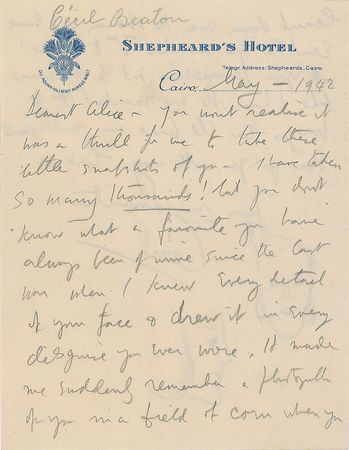 Cecil Beaton
SHEPHEARD'S HOTEL
Telegr. Address: Shepheards, Cairo
Cairo, May — 1942
Dearest Alice — you wont realise it
was a thrill for me to take these
little snapshots of you — I have taken
so many thousands! but you dont
know what a favorite you have
always been of mine since the last
war when I knew every detail
of your face & drew it in every
disguise you ever wore. It made
me suddenly remember a photograph
of you in a field of corn when you